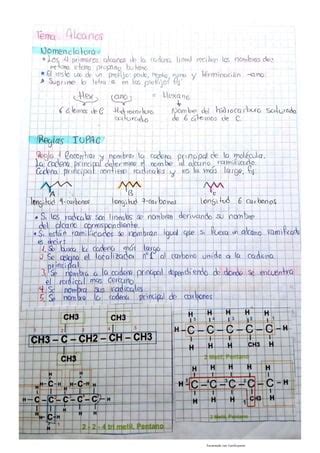 Tema: Alcanos
Nomenclatura:
• Los 4 primeros alcanos de la cadena lineal reciben los nombres de:
metano, etano, propano, butano
• El resto usa de un prefijo: penta, hepta, nona y terminación -ano.
Suprime la letra a en los prefijos
Hex (ano) = Hexano
6 átomos de C Hidrocarburo saturado Nombre del hidrocarburo saturado
de 6 átomos de C.
Reglas IUPAC
Regla 1 Encontrar y nombrar la cadena principal de la molécula.
La cadena principal determina el nombre al alcano ramificado.
Cadena principal contiene radicales y es la más larga,
longitud 9-carbonos longitud 9-carbonos longitud 6 carbonos
• Si los radicales son lineales se nombran derivando su nombre
del alcano correspondiente
• Si están ramificados se nombran igual que si fuera un alcano ramificado
es decir:
1. Se busca la cadena más larga
2. Se asigna el localizador nº1 al carbono unido a la cadena
principal
3. Se nombra a la cadena principal dependiendo de donde se encuentra
el radical más cercano
4. Se nombra sus radicales
5. Se nombra la cadena principal de carbonos
CH3 CH3
1 2 3 4 5
CH3 - C - CH2 - CH - CH3
CH3
2 - 2 - 4 tri metil, Pentano
H H H H H
H - C - C - C - C - C - H
H H H CH3 H
2 Metil, Pentano
H H H H H
H - C - C - C - C - C - H
2 Metil, Pentano